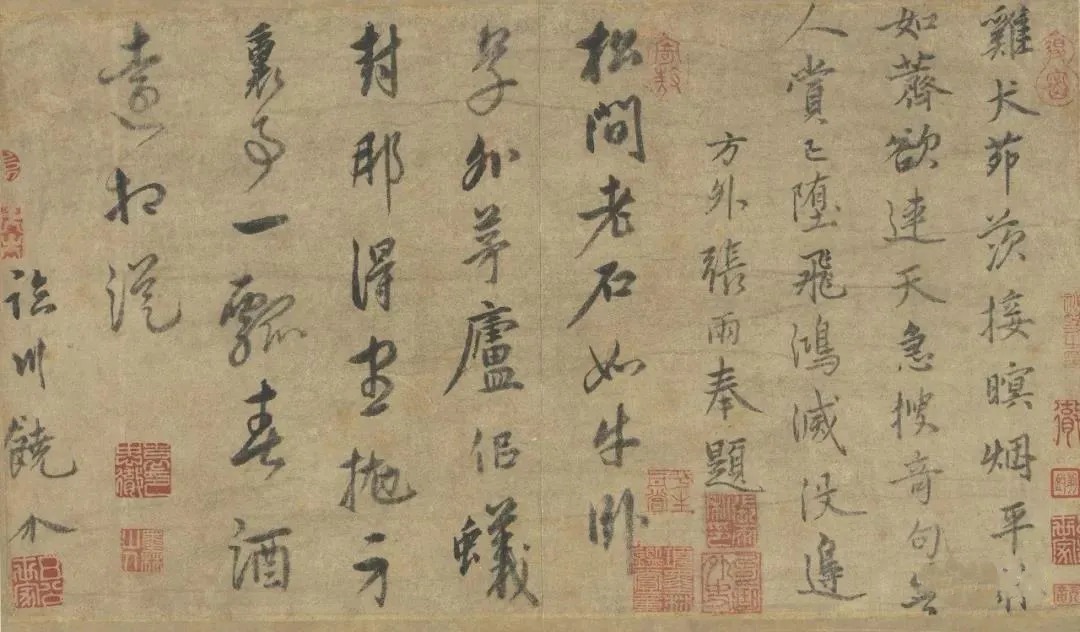 雞犬茆茨接暝烟平
如薺欲連天急搜奇句無
人賞已墮飛鴻滅沒邊
方外張雨奉題
松間老石如牛卧
外茅廬佀蟻
封那得盡抛方
裏事一瓢春酒
遠相從
臨川饒介